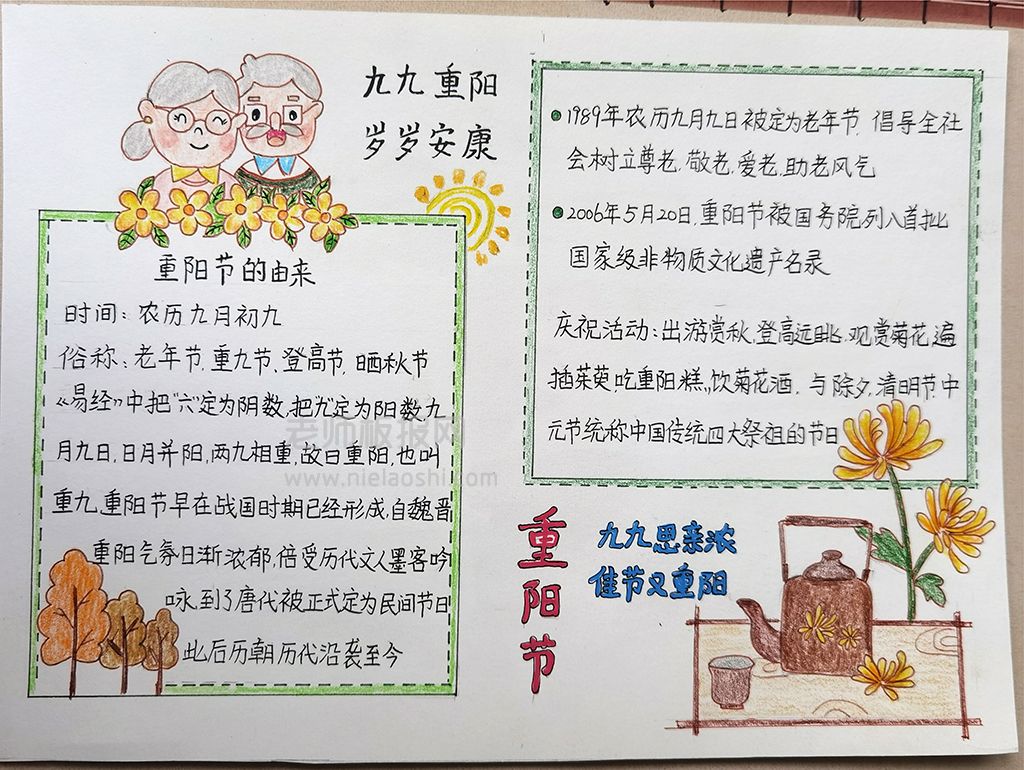 九九重阳
岁岁安康
重阳节的由来
时间：农历九月初九
俗称：老年节、重九节、登高节、晒秋节
《易经》中把“六”定为阴数，把“九”定为阳数，九
月九日，日月并阳，两九相重，故曰重阳，也叫
重九，重阳节早在战国时期已经形成，自魏晋
重阳气氛日渐浓郁，倍受历代文人墨客吟
咏，到了唐代被正式定为民间节日
此后历朝历代沿袭至今
老师板报网
www.nielaoshi.com
1989年农历九月九日被定为老年节，倡导全社
会树立尊老，敬老，爱老，助老风气
2006年5月20日，重阳节被国务院列入首批
国家级非物质文化遗产名录
庆祝活动：出游赏秋，登高远眺，观赏菊花，遍
插茱萸，吃重阳糕，饮菊花酒，与除夕，清明节，中
元节统称中国传统四大祭祖的节日
重阳节
九九思亲浓
佳节又重阳